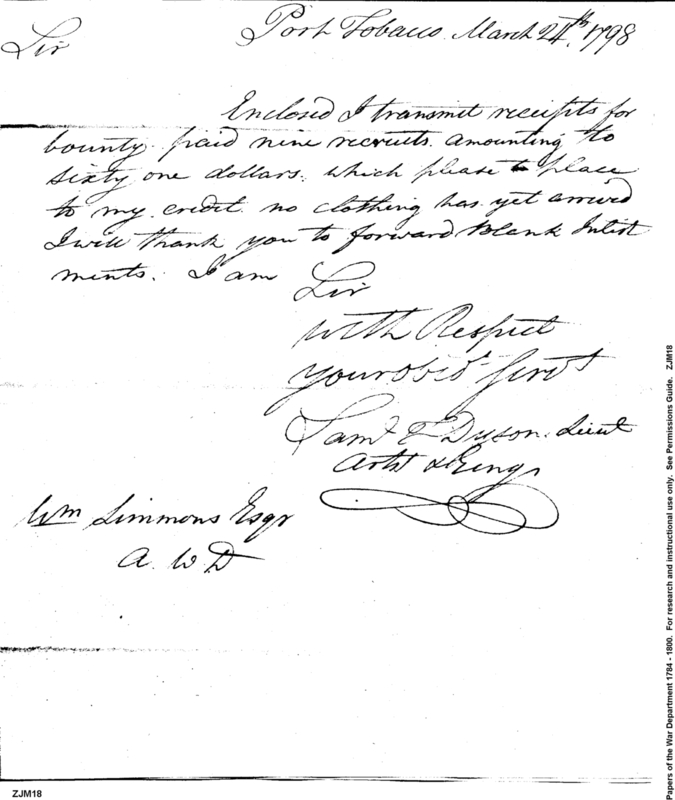 Port Tobacco March 24th, 1798
Sir
Enclosed I transmit receipts for
bounty paid nine recruits amounting to
sixty one dollars. which please to place
to my credit no clothing has yet arrived
I will thank you to forward Blank Inlist
ments. I am
Sir
with Respect
your obid.t Servt
Saml T Dyson. Lieut
Artst & Engs
Wm Simmons Esqr
A. W D
Papers of the War Department 1784 - 1800. For research and instructional use only. See Permissions Guide. ZJM18
ZJM18